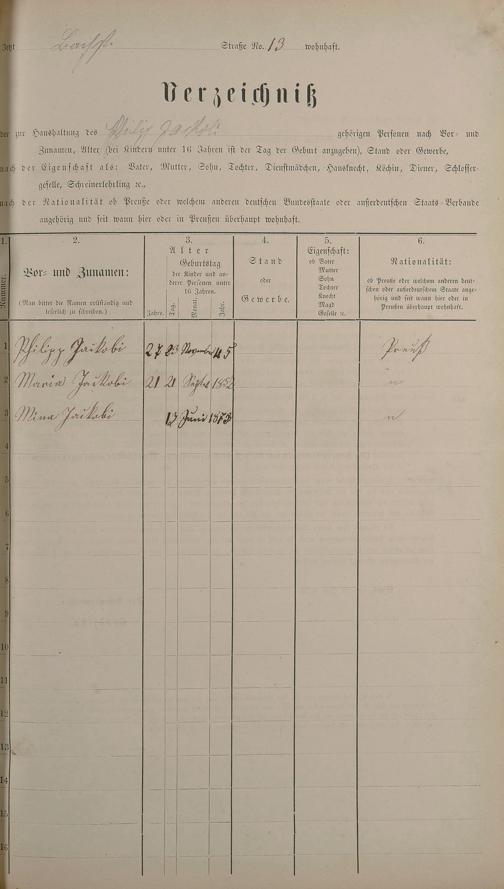 Jetzt Bachst. Straße No. 13 wohnhaft.
Verzeichniß
der zur Haushaltung des Philip Jackobi gehörigen Personen nach Vor- und
Zunamen, Alter (bei Kindern unter 16 Jahren ist der Tag der Geburt anzugeben), Stand oder Gewerbe,
nach der Eigenschaft als: Vater, Mutter, Sohn, Tochter, Dienstmädchen, Hausknecht, Köchin, Diener, Schlosser-
geselle, Schreinerlehrling ꝛc.,
nach der Nationalität ob Preuße oder welchem anderen deutschen Bundesstaate oder außerdeutschen Staats-Verbande
angehörig und seit wann hier oder in Preußen überhaupt wohnhaft.
1. 2. 3. 4. 5. 6.
Nummer.
Vor- und Zunamen:
(Man bittet die Namen vollständig und
leserlich zu schreiben.)
Alter
Geburtstag
der Kinder und an-
derer Personen unter
16 Jahren.
Jahre. Tag. Monat. Jahr.
Stand
oder
Gewerbe.
Eigenschaft:
ob Vater
Mutter
Sohn
Tochter
Knecht
Magd
Geselle ꝛc.
Nationalität:
ob Preuße oder welchem anderen deut-
schen oder außerdeutschen Staate ange-
hörig und seit wann hier oder in
Preußen überhaupt wohnhaft.
1 Philipp Jackobi 27 November 45 Preuß
2 Maria Jackobi 21 21 Septbr 1852 "
3 Mina Jackobi Juni 1873 "
4
5
6
7
8
9
10
11
12
13
14
15
16